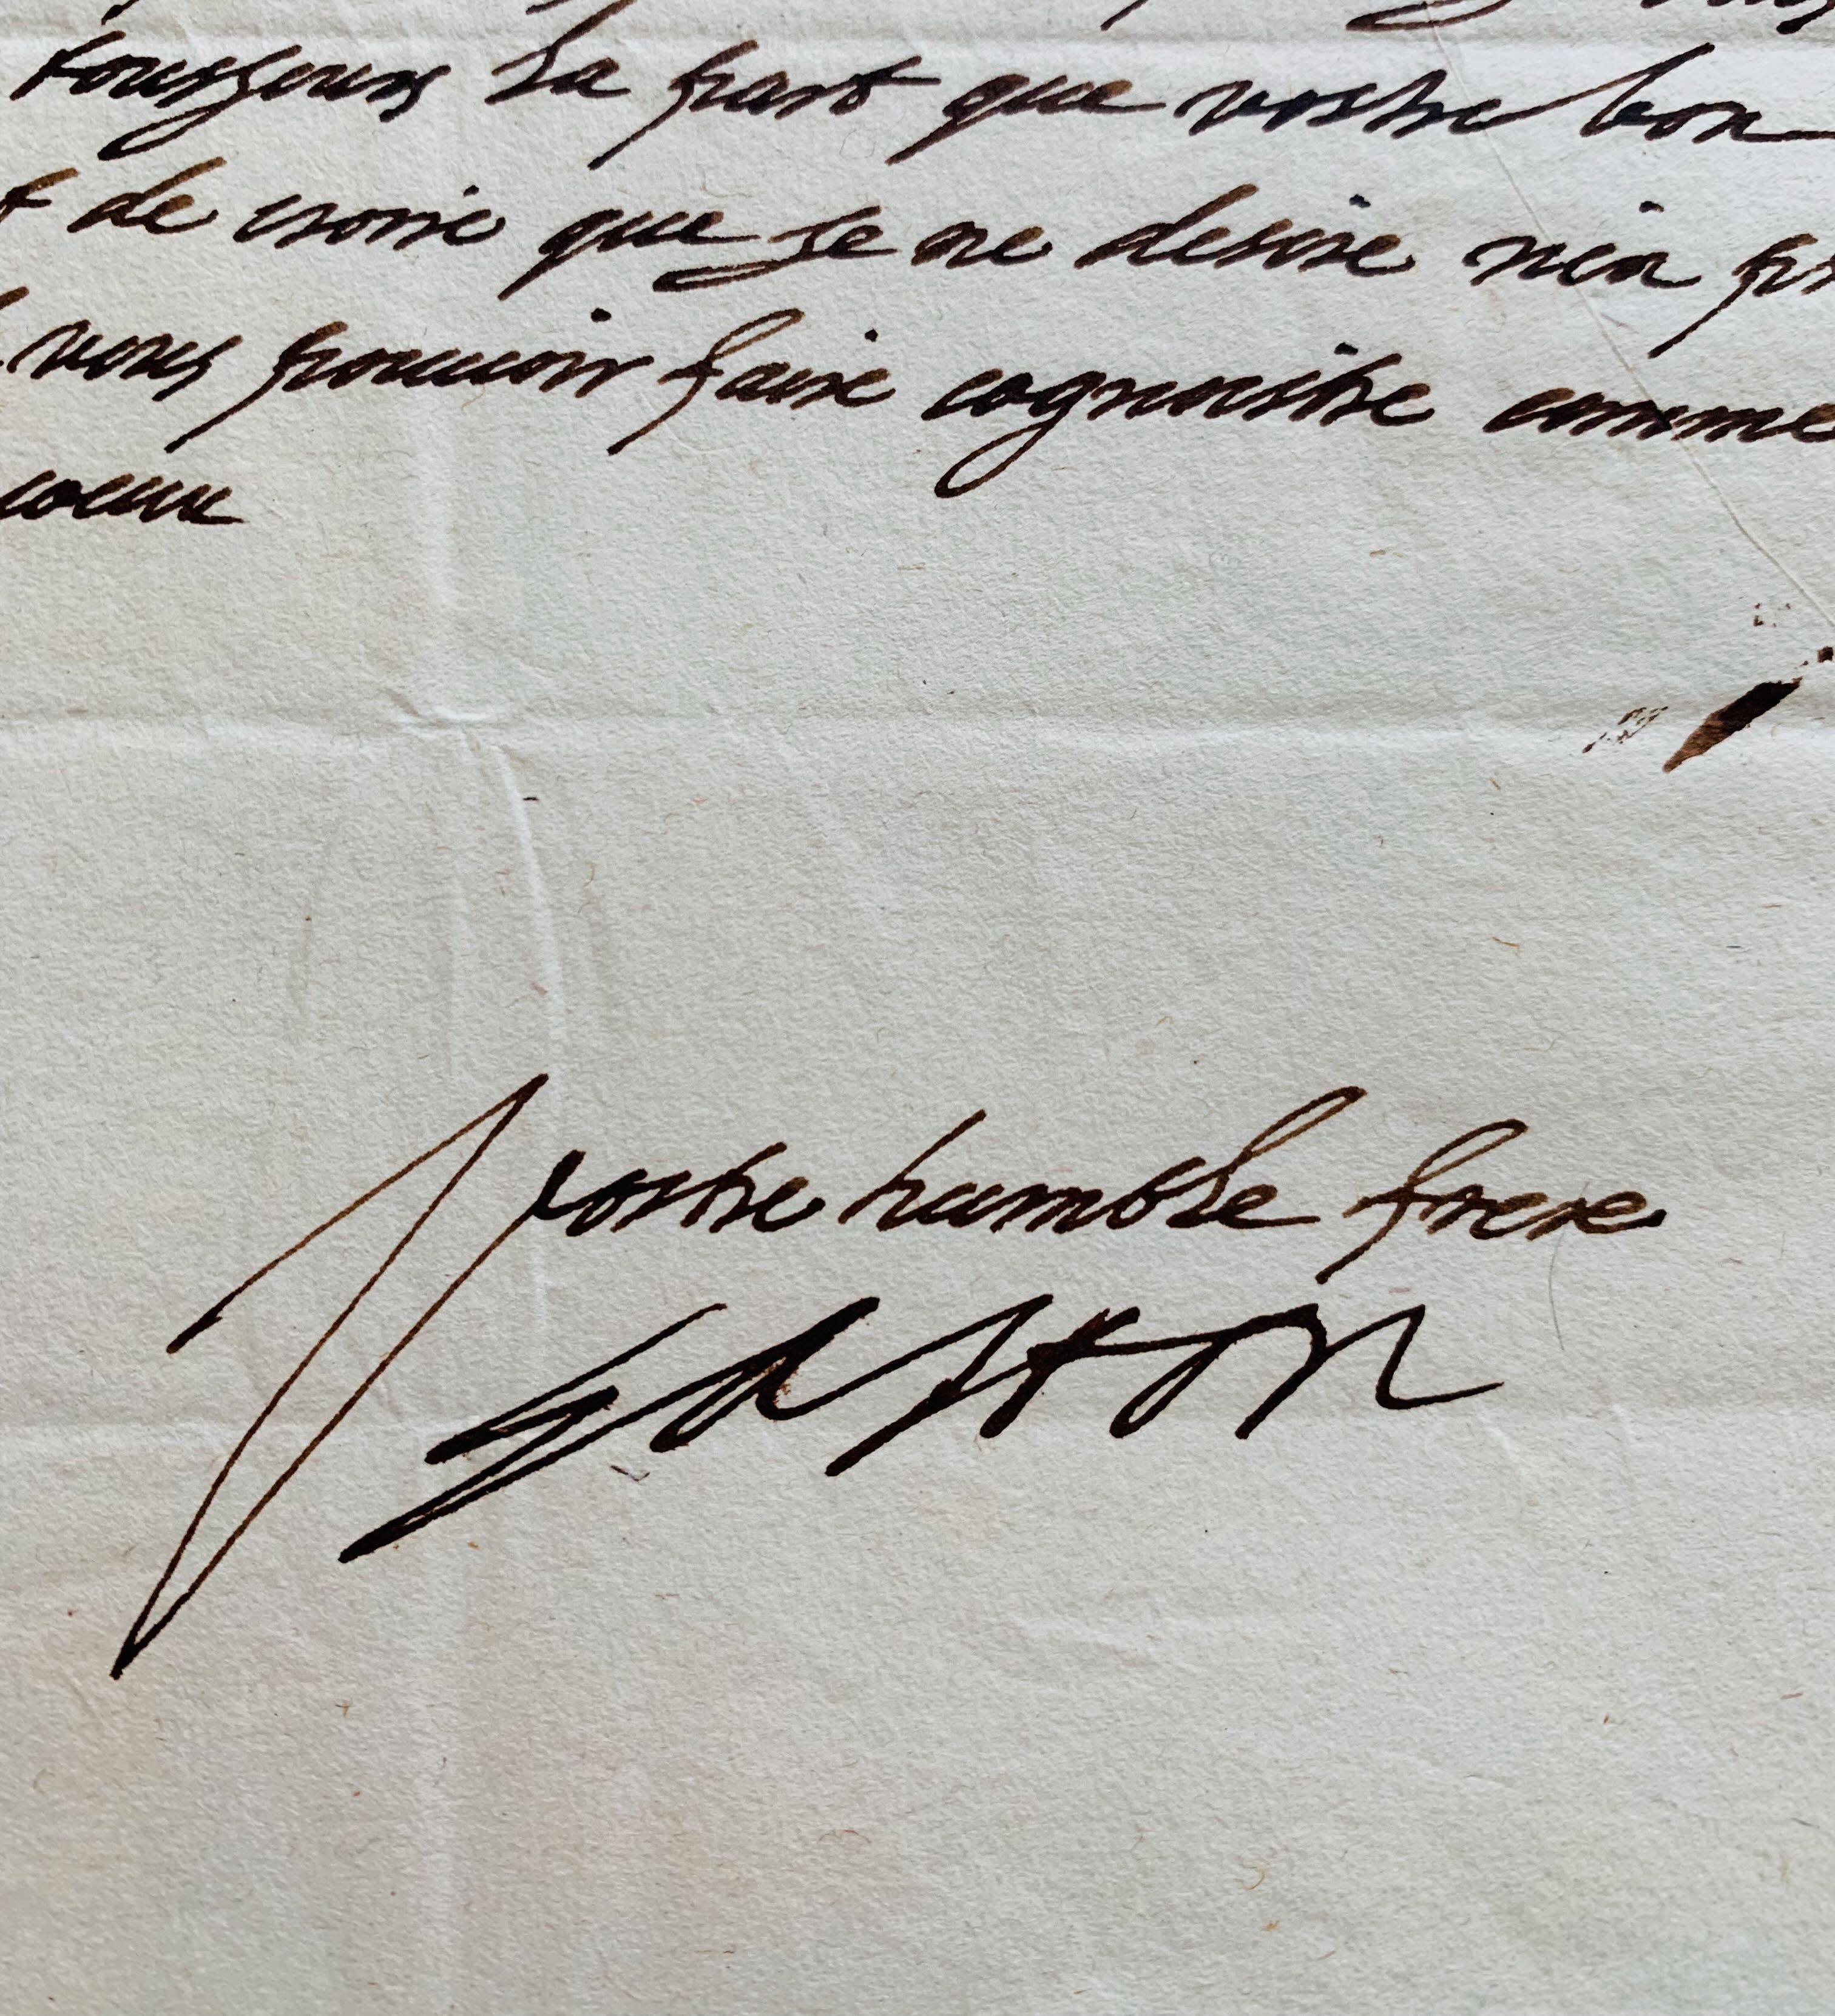 tousjours la part que vostre bon
t de croire que je ne desire rien pr
vous pouuoir faire cognoistre comme
coeur
vostre humble frere
Gaston